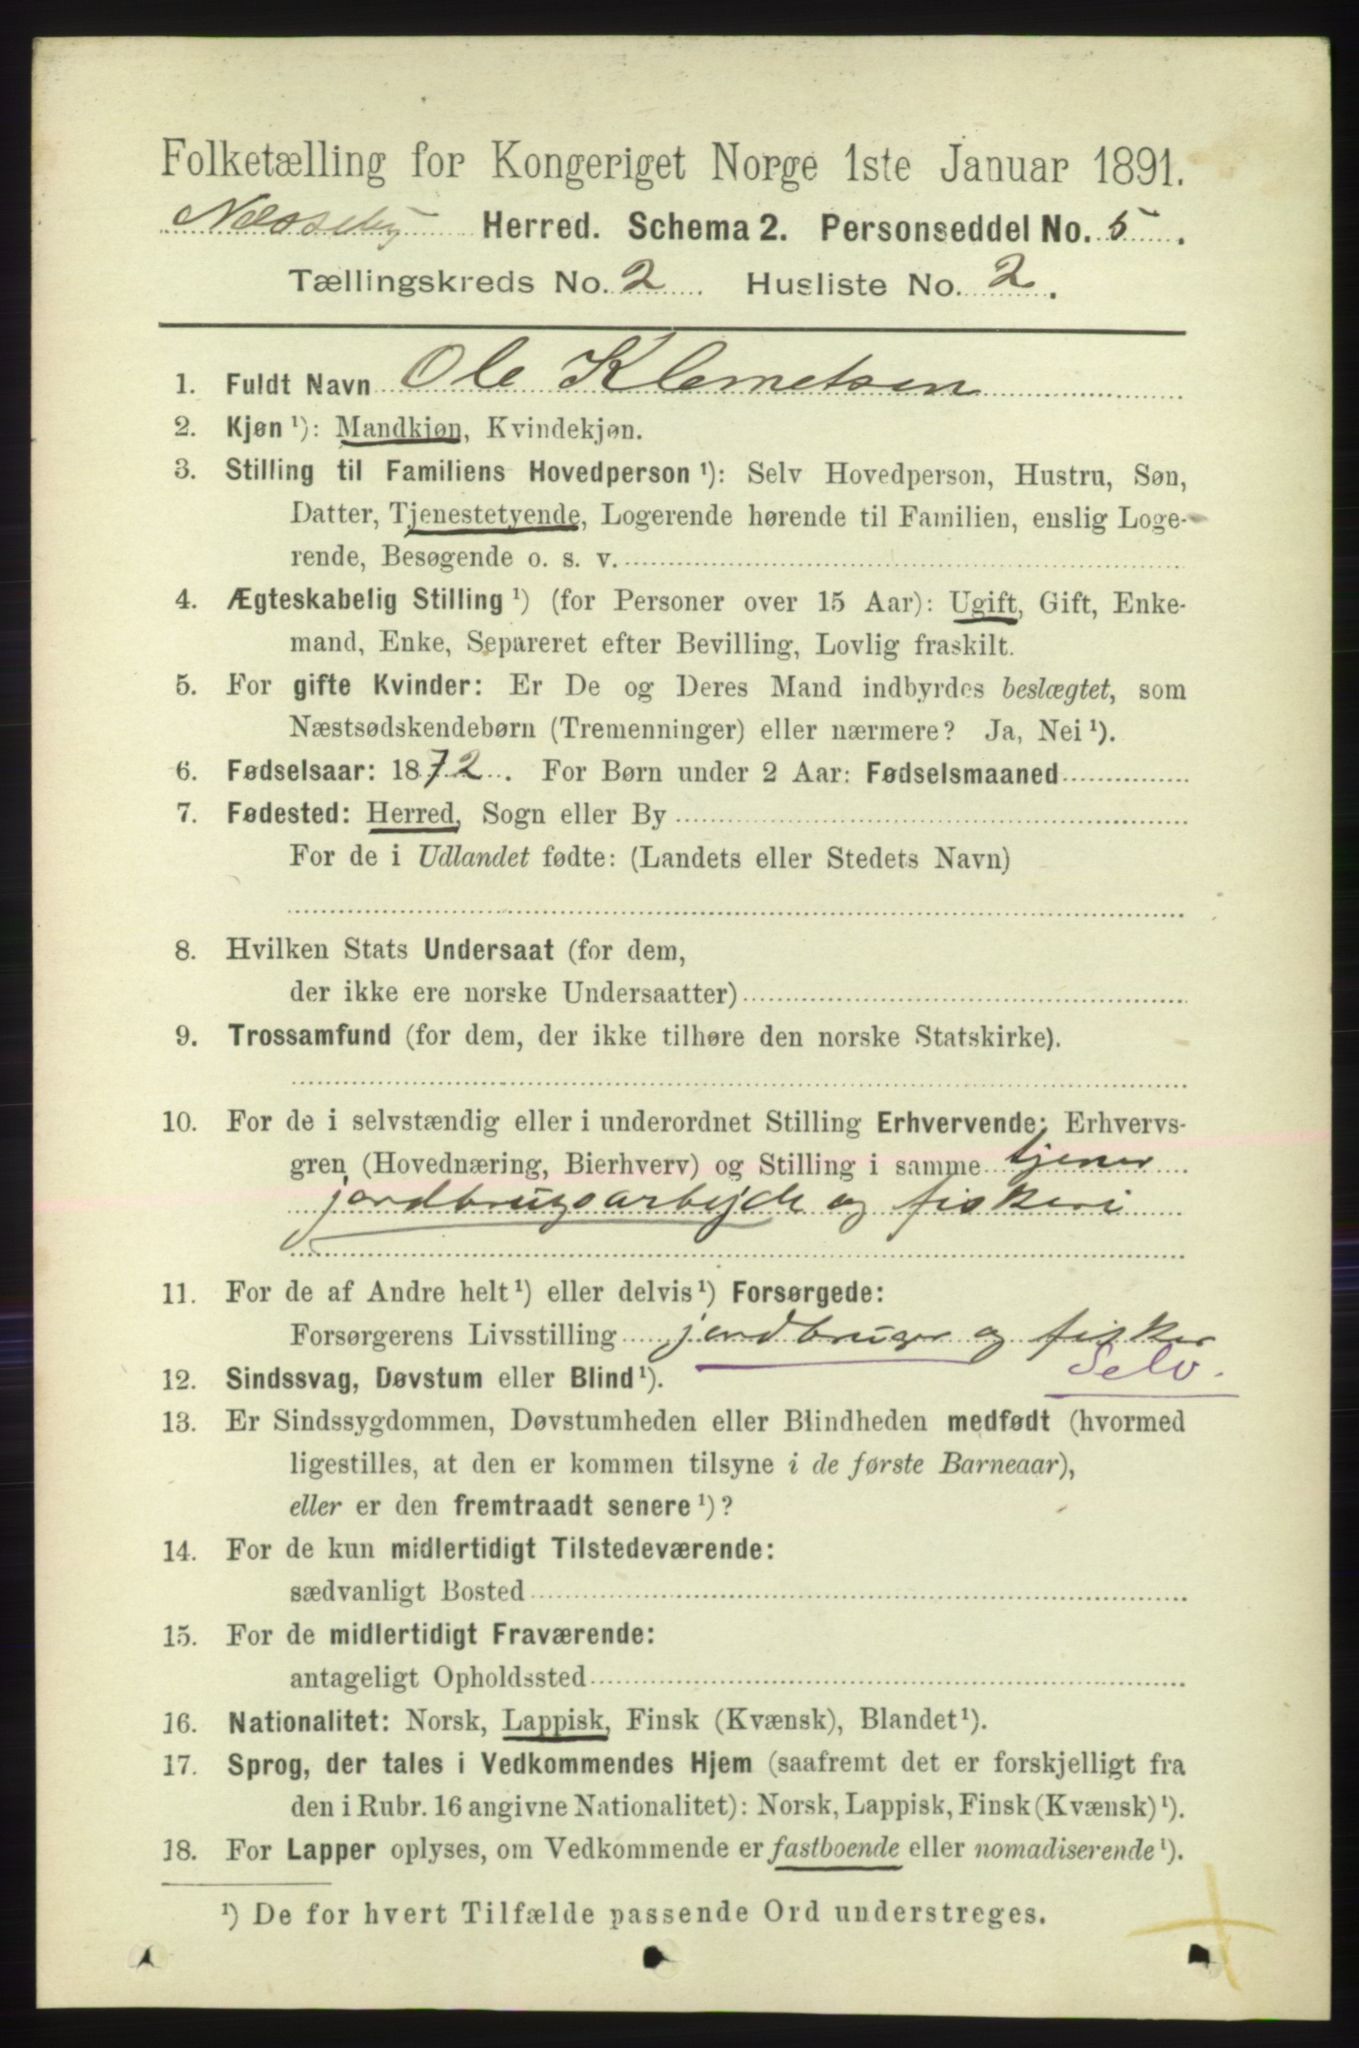 Folketælling for Kongeriget Norge 1ste Januar 1891.
Nesseby Herred. Schema 2. Personseddel No. 5.
Tællingskreds No. 2 Husliste No. 2.
1. Fuldt Navn Ole Klemetsen
2. Kjøn ¹): Mandkjøn, Kvindekjøn.
3. Stilling til Familiens Hovedperson ¹): Selv Hovedperson, Hustru, Søn,
Datter, Tjenestetyende, Logerende hørende til Familien, enslig Loge-
rende, Besøgende o. s. v.
4. Ægteskabelig Stilling ¹) (for Personer over 15 Aar): Ugift, Gift, Enke-
mand, Enke, Separeret efter Bevilling, Lovlig fraskilt.
5. For gifte Kvinder: Er De og Deres Mand indbyrdes beslægtet, som
Næstsødskendebørn (Tremenninger) eller nærmere? Ja, Nei ¹).
6. Fødselsaar: 1872. For Børn under 2 Aar: Fødselsmaaned
7. Fødested: Herred, Sogn eller By
For de i Udlandet fødte: (Landets eller Stedets Navn)
8. Hvilken Stats Undersaat (for dem,
der ikke ere norske Undersaatter)
9. Trossamfund (for dem, der ikke tilhøre den norske Statskirke).
10. For de i selvstændig eller i underordnet Stilling Erhvervende: Erhvervs-
gren (Hovednæring, Bierhverv) og Stilling i samme tjener
jordbrugsarbejde og fiskeri
11. For de af Andre helt ¹) eller delvis ¹) Forsørgede:
Forsørgerens Livsstilling jordbruger og fisker
12. Sindssvag, Døvstum eller Blind ¹). Selv.
13. Er Sindssygdommen, Døvstumheden eller Blindheden medfødt (hvormed
ligestilles, at den er kommen tilsyne i de første Barneaar),
eller er den fremtraadt senere ¹)?
14. For de kun midlertidigt Tilstedeværende:
sædvanligt Bosted
15. For de midlertidigt Fraværende:
antageligt Opholdssted
16. Nationalitet: Norsk, Lappisk, Finsk (Kvænsk), Blandet ¹).
17. Sprog, der tales i Vedkommendes Hjem (saafremt det er forskjelligt fra
den i Rubr. 16 angivne Nationalitet): Norsk, Lappisk, Finsk (Kvænsk) ¹).
18. For Lapper oplyses, om Vedkommende er fastboende eller nomadiserende ¹).
¹) De for hvert Tilfælde passende Ord understreges.